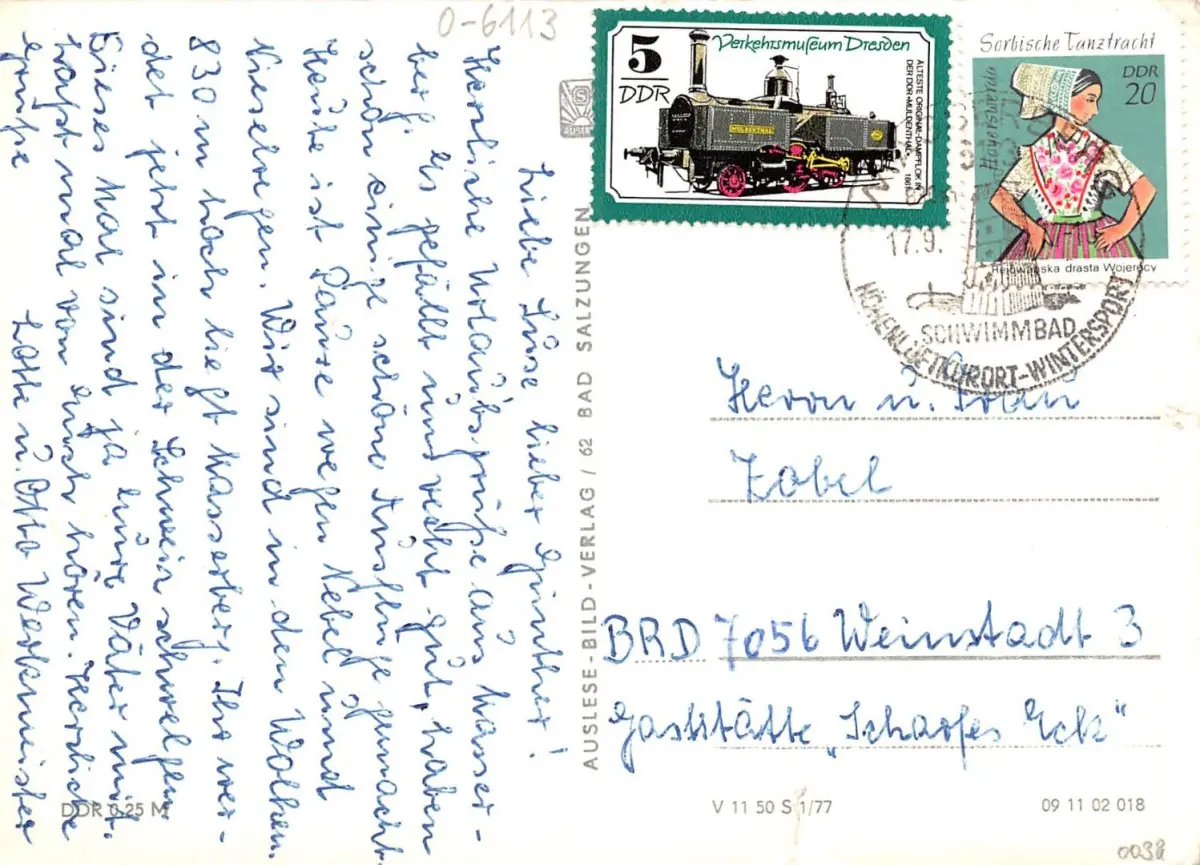 0-6113
Liebe Luise lieber Günther!
Herzliche Urlaubsgrüße aus Masser-
berg. Es gefällt uns recht gut, haben
schon einige schöne Ausflüge gemacht.
Heute ist Pause wegen Nebel und
Nieselregen. Wir sind in den Wolken.
830 m hoch liegt Masserberg. Ihr wer-
det jetzt in der Schweiz schwelgen
Dieses Mal sind ja Eure Väter mit.
Laßt mal von Euch hören. Herzliche
Grüße
Lotte u. Otto Werkmeister
DDR 0,25 M
AUSLESE-BILD-VERLAG / 62 BAD SALZUNGEN
5
DDR
Verkehrsmuseum Dresden
ÄLTESTE ORIGINAL-DAMPFLOK IN
DER DDR »MULDENTHAL«
MULDENTHAL
Sorbische Tanztracht
DDR
20
Hoyerswerda
drasta Wojerecy
17.9.
SCHWIMMBAD
HÖHENLUFTKURORT-WINTERSPORT
Herrn u. Frau
Zobel
BRD 7056 Weinstadt 3
Gaststätte „Scharfes Eck"
V 11 50 S 1/77
09 11 02 018
0038